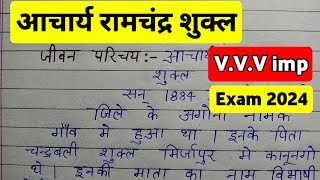 आचार्य रामचंद्र शुक्ल
जीवन परिचय :- आचार्य
शुक्ल
V.V.V imp
सन् 1884
Exam 2024
जिले के अगोना नामक
गाँव मे हुआ था। इनके पिता
चन्द्रबली शुक्ल मिर्जापुर मे कानूनगो
थे। इनकी माता का नाम विभाषी